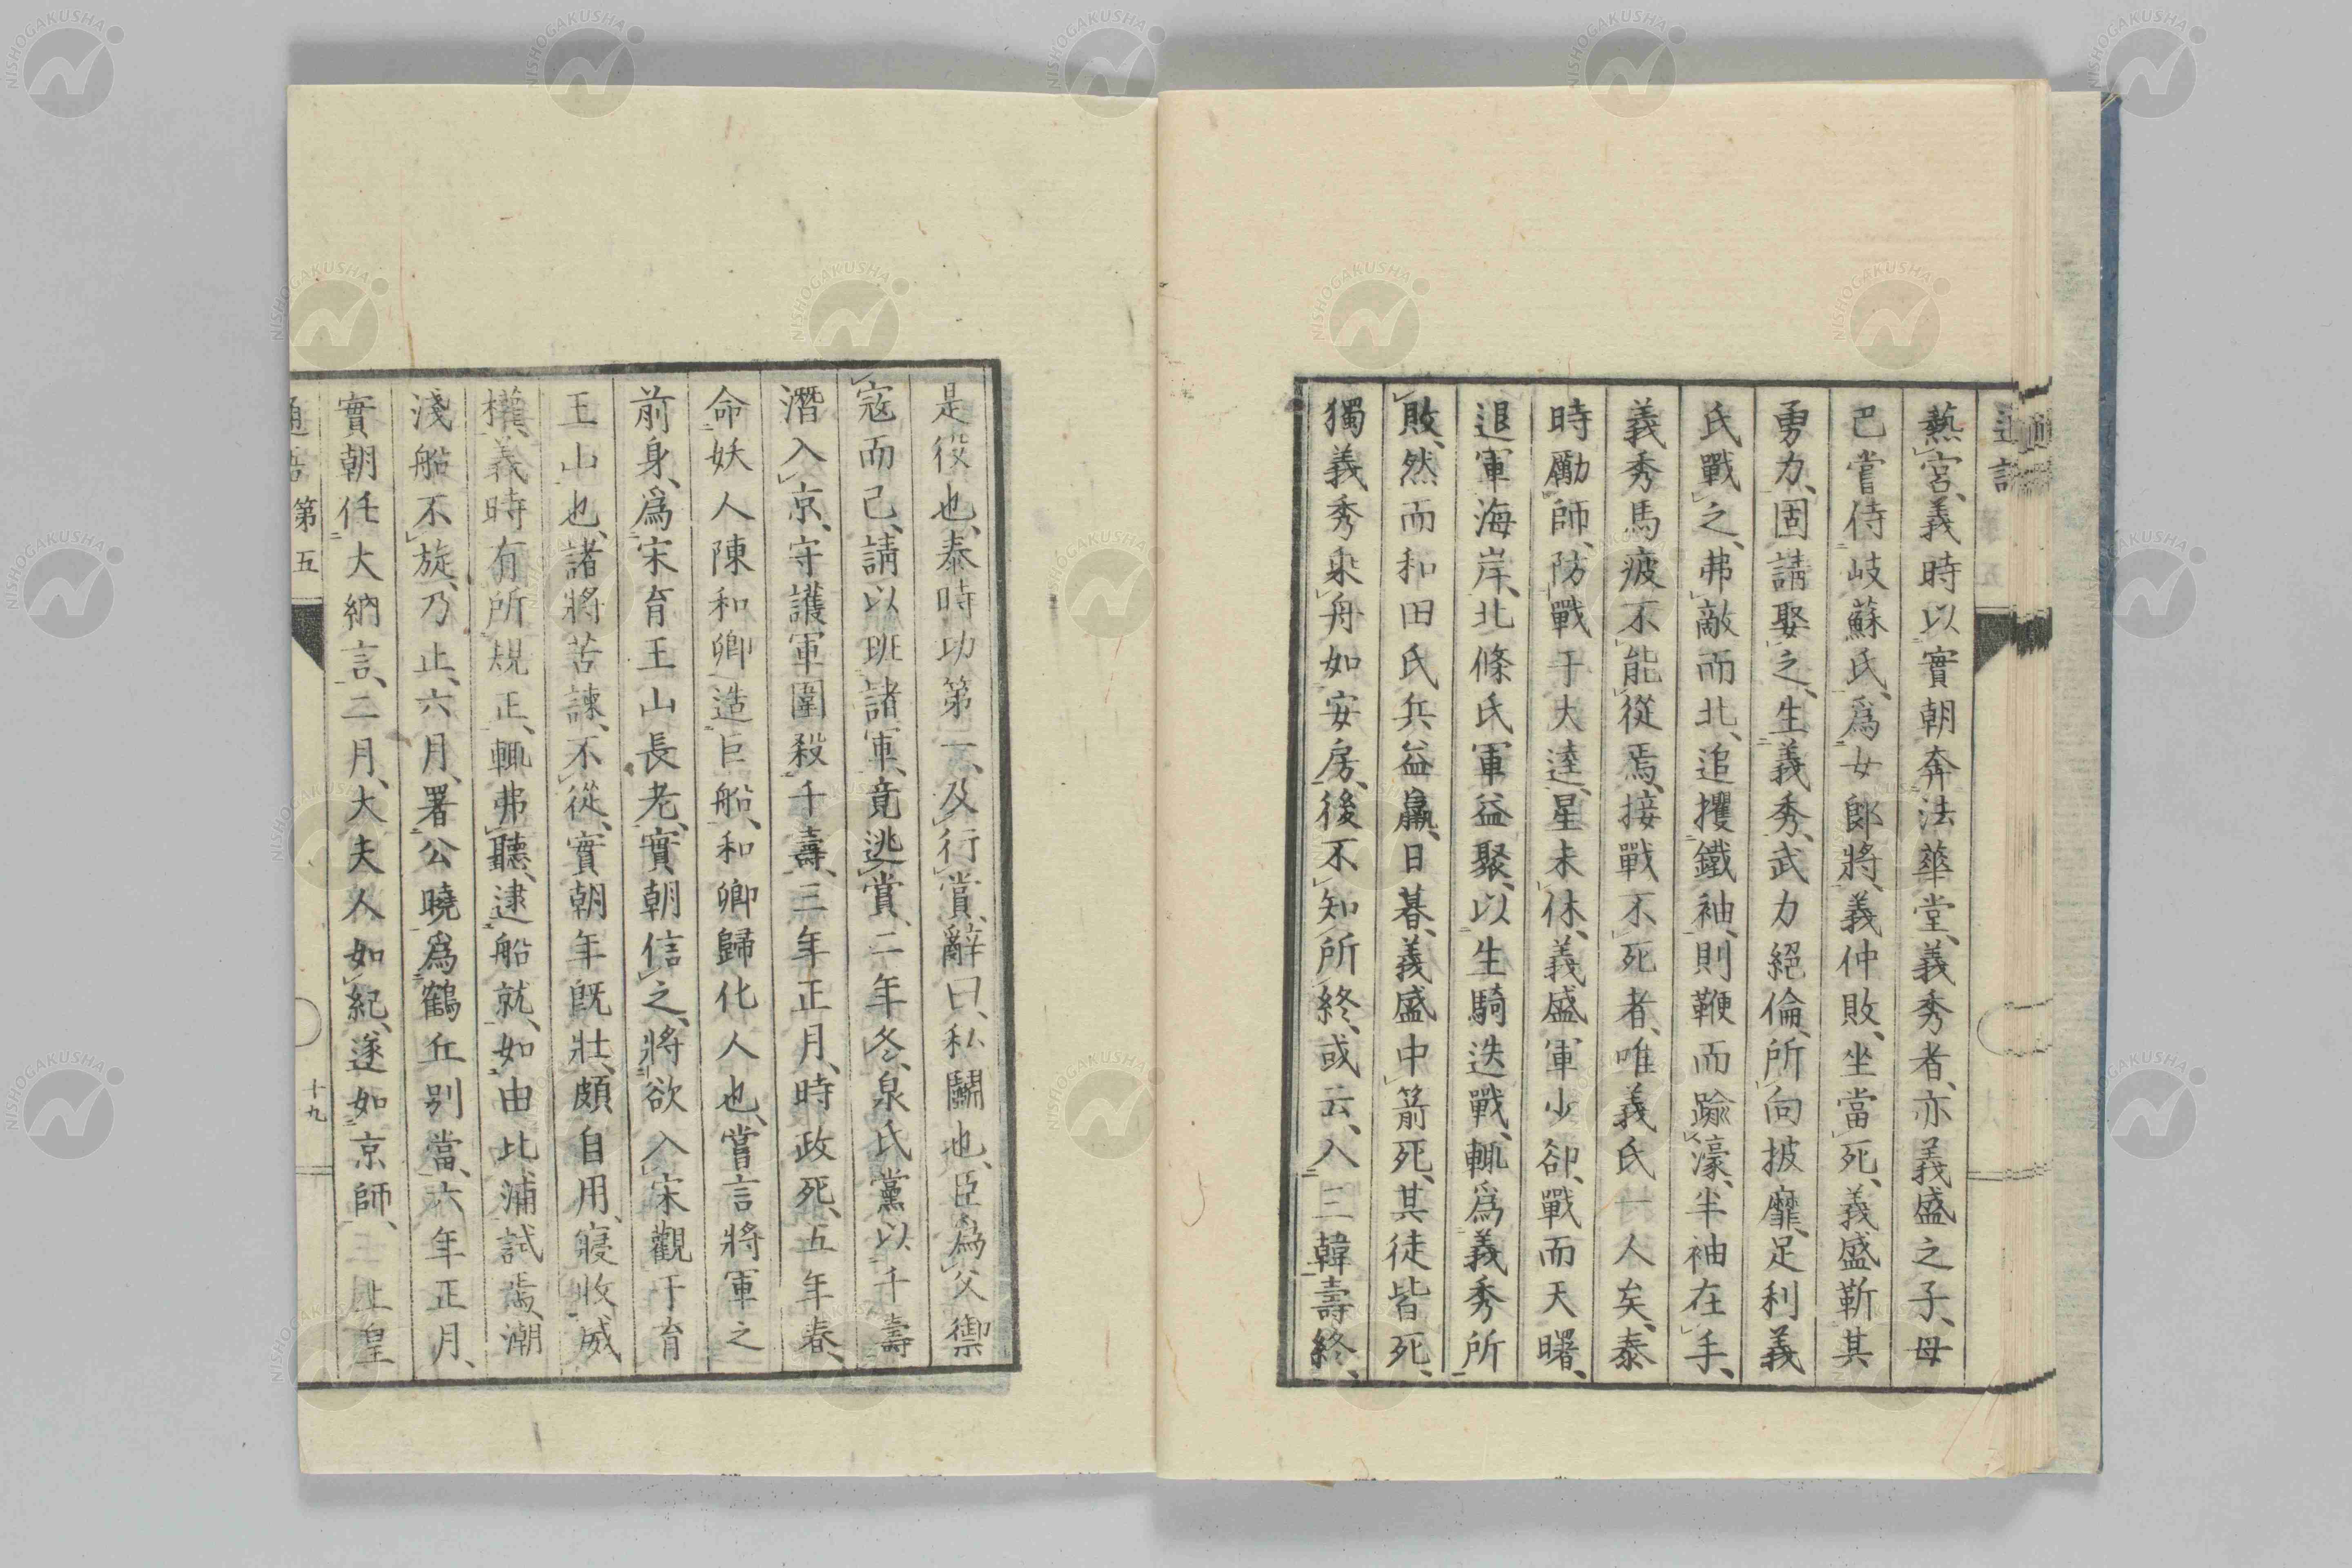 通語
爇宮、義時以實朝奔法華堂、義秀者、亦義盛之子、母
巴嘗侍岐蘇氏、爲女郎將、義仲敗、坐當死、義盛靳其
勇力、固請娶之、生義秀、武力絕倫、所向披靡、足利義
氏戰之、弗敵而北、追攫鐵袖、則鞭而踰濠、半袖在手、
義秀馬疲不能從焉、接戰不死者、唯義氏一人矣、泰
時勵師、防戰于大逵、星未休、義盛軍少卻、戰而天曙、
退軍海岸、北條氏軍益聚、以生騎迭戰、輒爲義秀所
敗、然而和田氏兵益羸、日暮、義盛中箭死、其徒皆死、
獨義秀乘舟如安房、後不知所終、或云、入三韓壽終、
是役也、泰時功第一、及行賞、辭曰、私鬭也、臣爲父禦
寇而已、請以班諸軍、竟逃賞、二年冬、泉氏黨以千壽
潛入京、守護軍圍殺千壽、三年正月、時政死、五年春、
命妖人陳和卿造巨船、和卿歸化人也、嘗言將軍之
前身、爲宋育王山長老、實朝信之、將欲入宋觀于育
王山也、諸將苦諫、不從、實朝年既壯、頗自用、寖收威
權、義時有所規正、輒弗聽、逮船就、如由比浦試焉、潮
淺船不旋、乃止、六月、署公曉爲鶴丘別當、六年正月、
實朝任大納言、二月、大夫人如紀、遂如京師、三上皇
通語 第五 十九